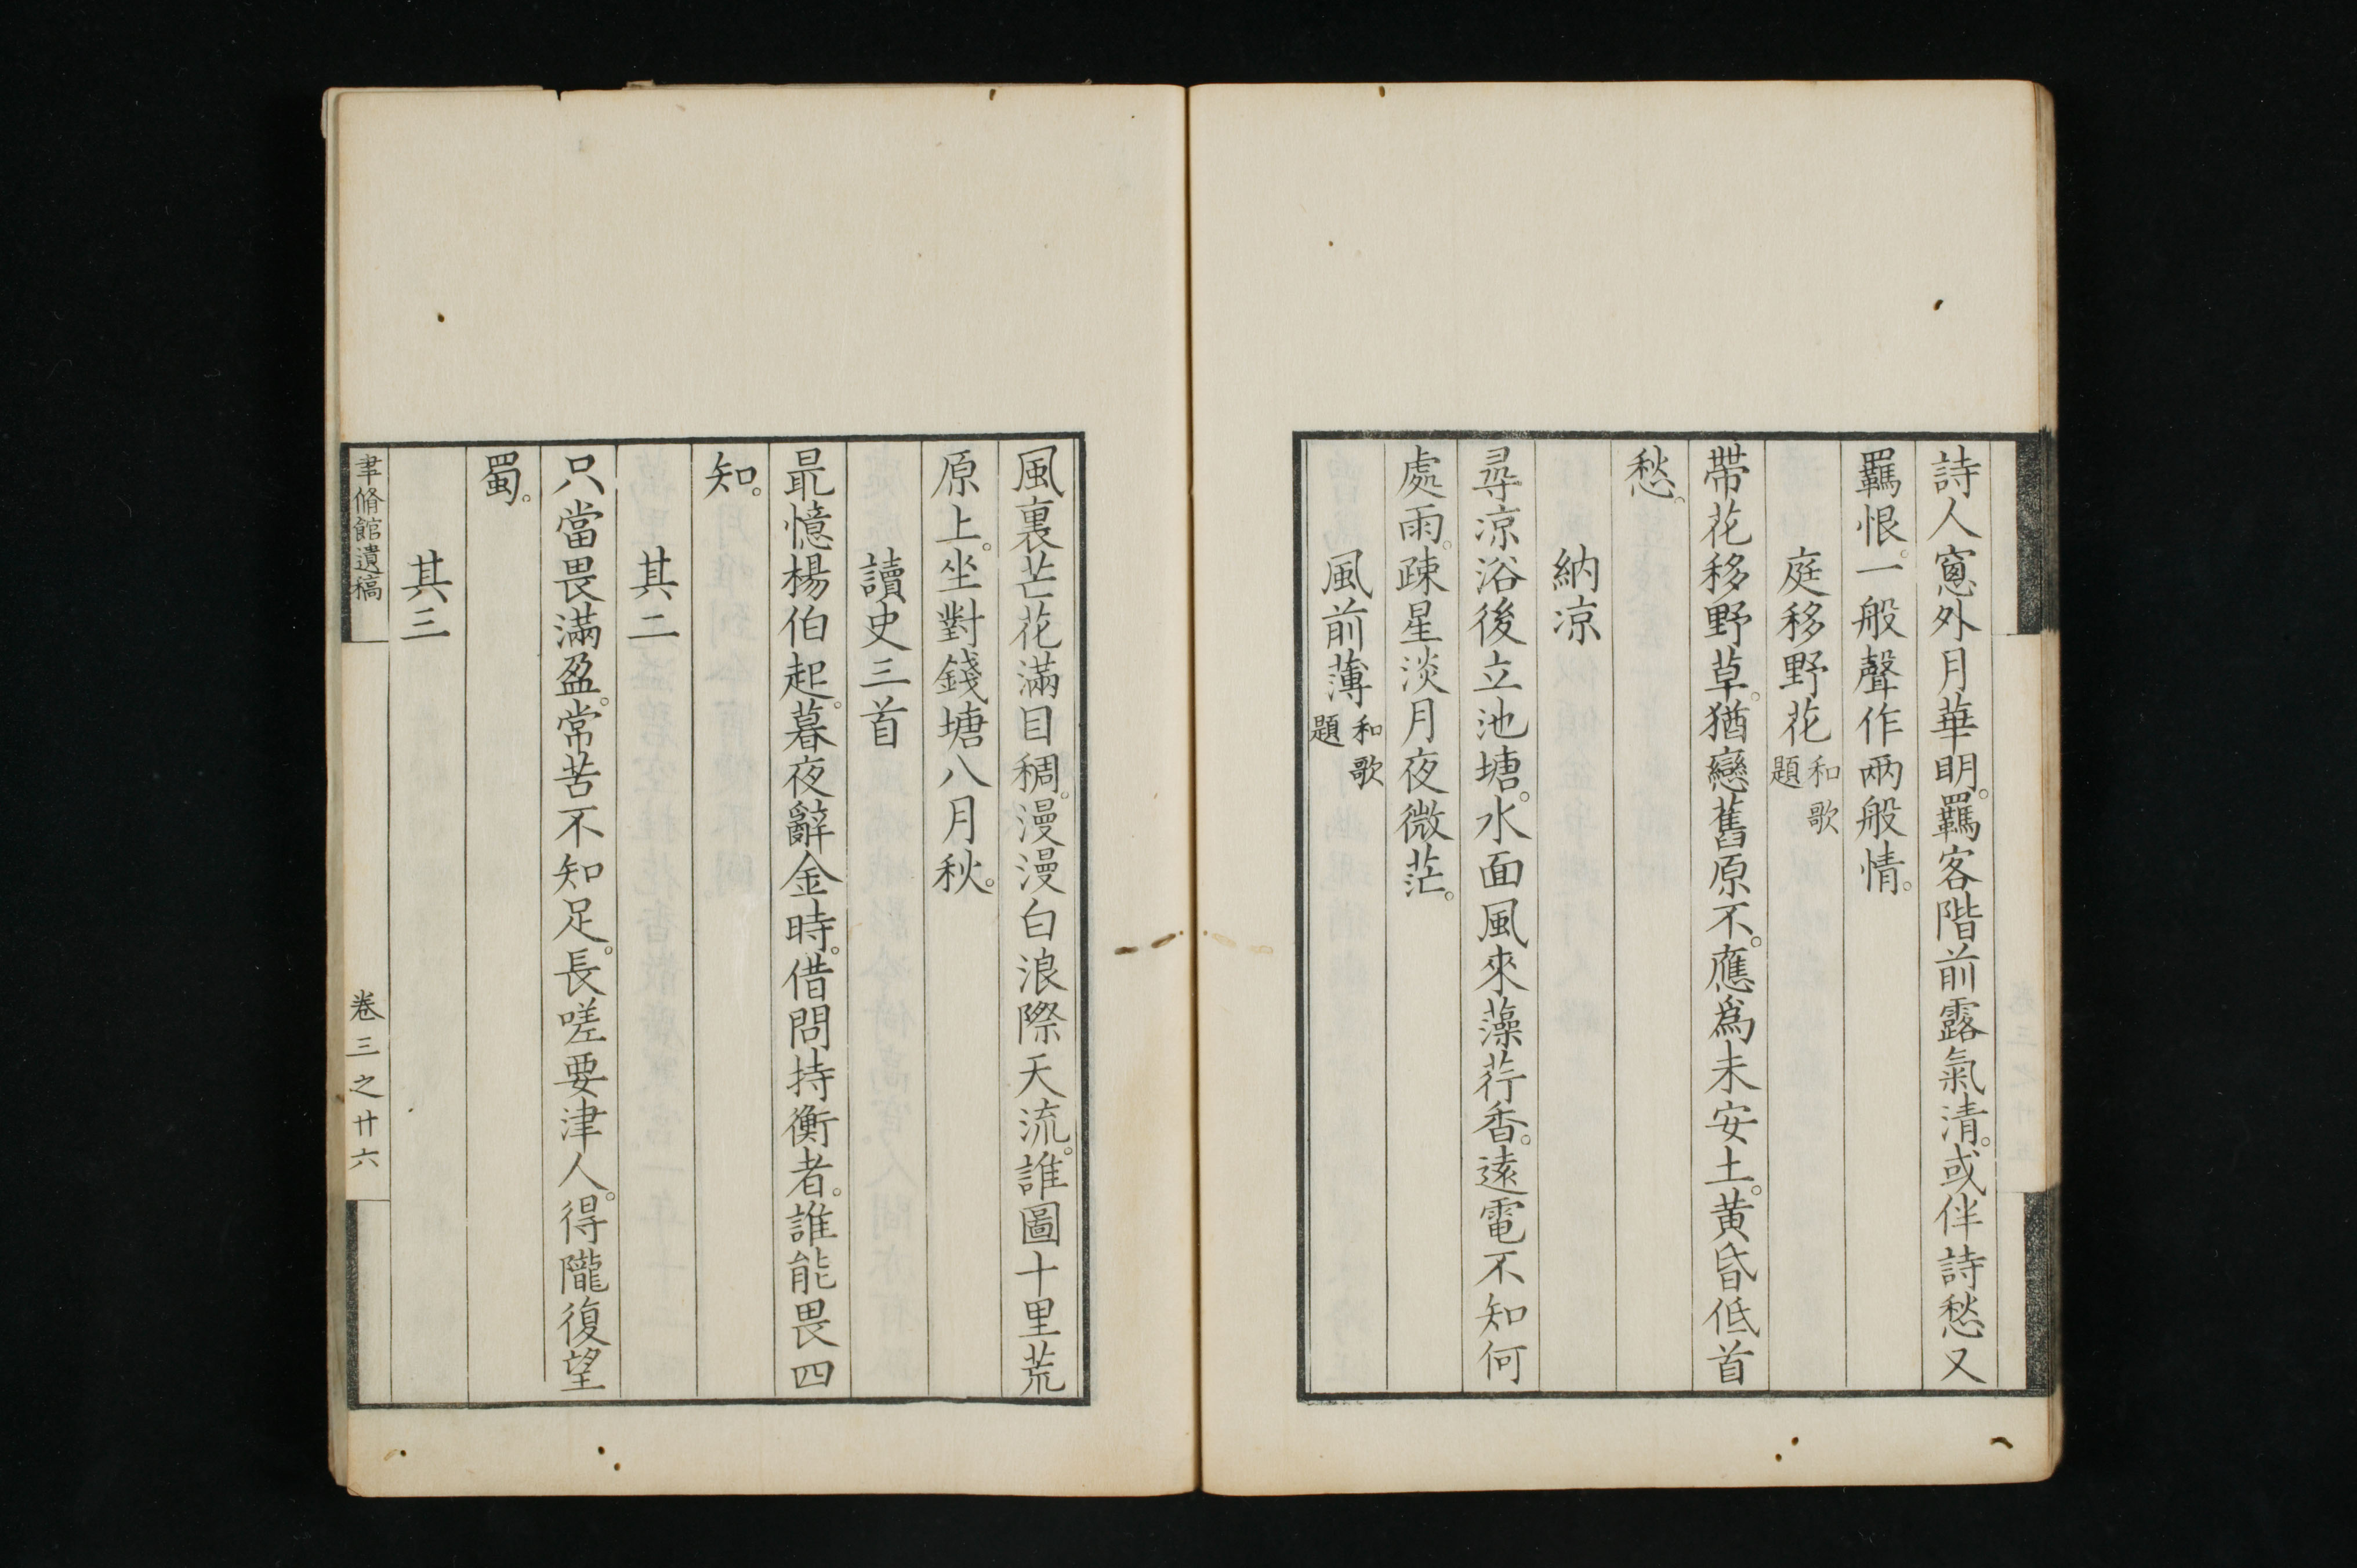 詩人窻外月華明。羈客階前露氣清。或伴詩愁又
羈恨。一般聲作兩般情。
庭移野花和歌題
帶花移野草。猶戀舊原不。應爲未安土。黄昏低首
愁。
納凉
尋凉浴後立池塘。水面風來藻荇香。遠電不知何
處雨。疎星淡月夜微茫。
風前薄和歌題
風裏芒花滿目稠。漫漫白浪際天流。誰圖十里荒
原上。坐對錢塘八月秋。
讀史三首
最憶楊伯起。暮夜辭金時。借問持衡者。誰能畏四
知。
其二
只當畏滿盈。常苦不知足。長嗟要津人。得隴復望
蜀。
其三
聿脩館遺稿
卷三之廿六